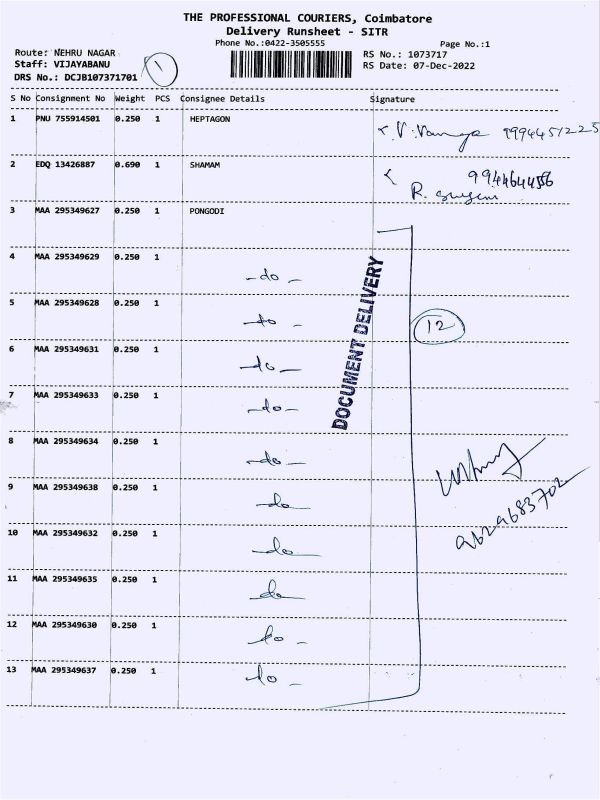 THE PROFESSIONAL COURIERS, Coimbatore
Delivery Runsheet - SITR
Phone No.:0422-3505555 Page No.:1
Route: NEHRU NAGAR RS No.: 1073717
Staff: VIJAYABANU 1 RS Date: 07-Dec-2022
DRS No.: DCJB107371701
S No Consignment No Weight PCS Consignee Details Signature
1 PNU 755914501 0.250 1 HEPTAGON 9994451225
2 EDQ 13426887 0.690 1 SHAMAM 9944644556
R.
3 MAA 295349627 0.250 1 PONGODI
4 MAA 295349629 0.250 1 -do-
5 MAA 295349628 0.250 1 -do-
12
6 MAA 295349631 0.250 1 -do-
7 MAA 295349633 0.250 1 -do-
DOCUMENT DELIVERY
8 MAA 295349634 0.250 1 -do-
9 MAA 295349638 0.250 1 do
9629683702
10 MAA 295349632 0.250 1 do
11 MAA 295349635 0.250 1 do
12 MAA 295349630 0.250 1 do -
13 MAA 295349637 0.250 1 do -